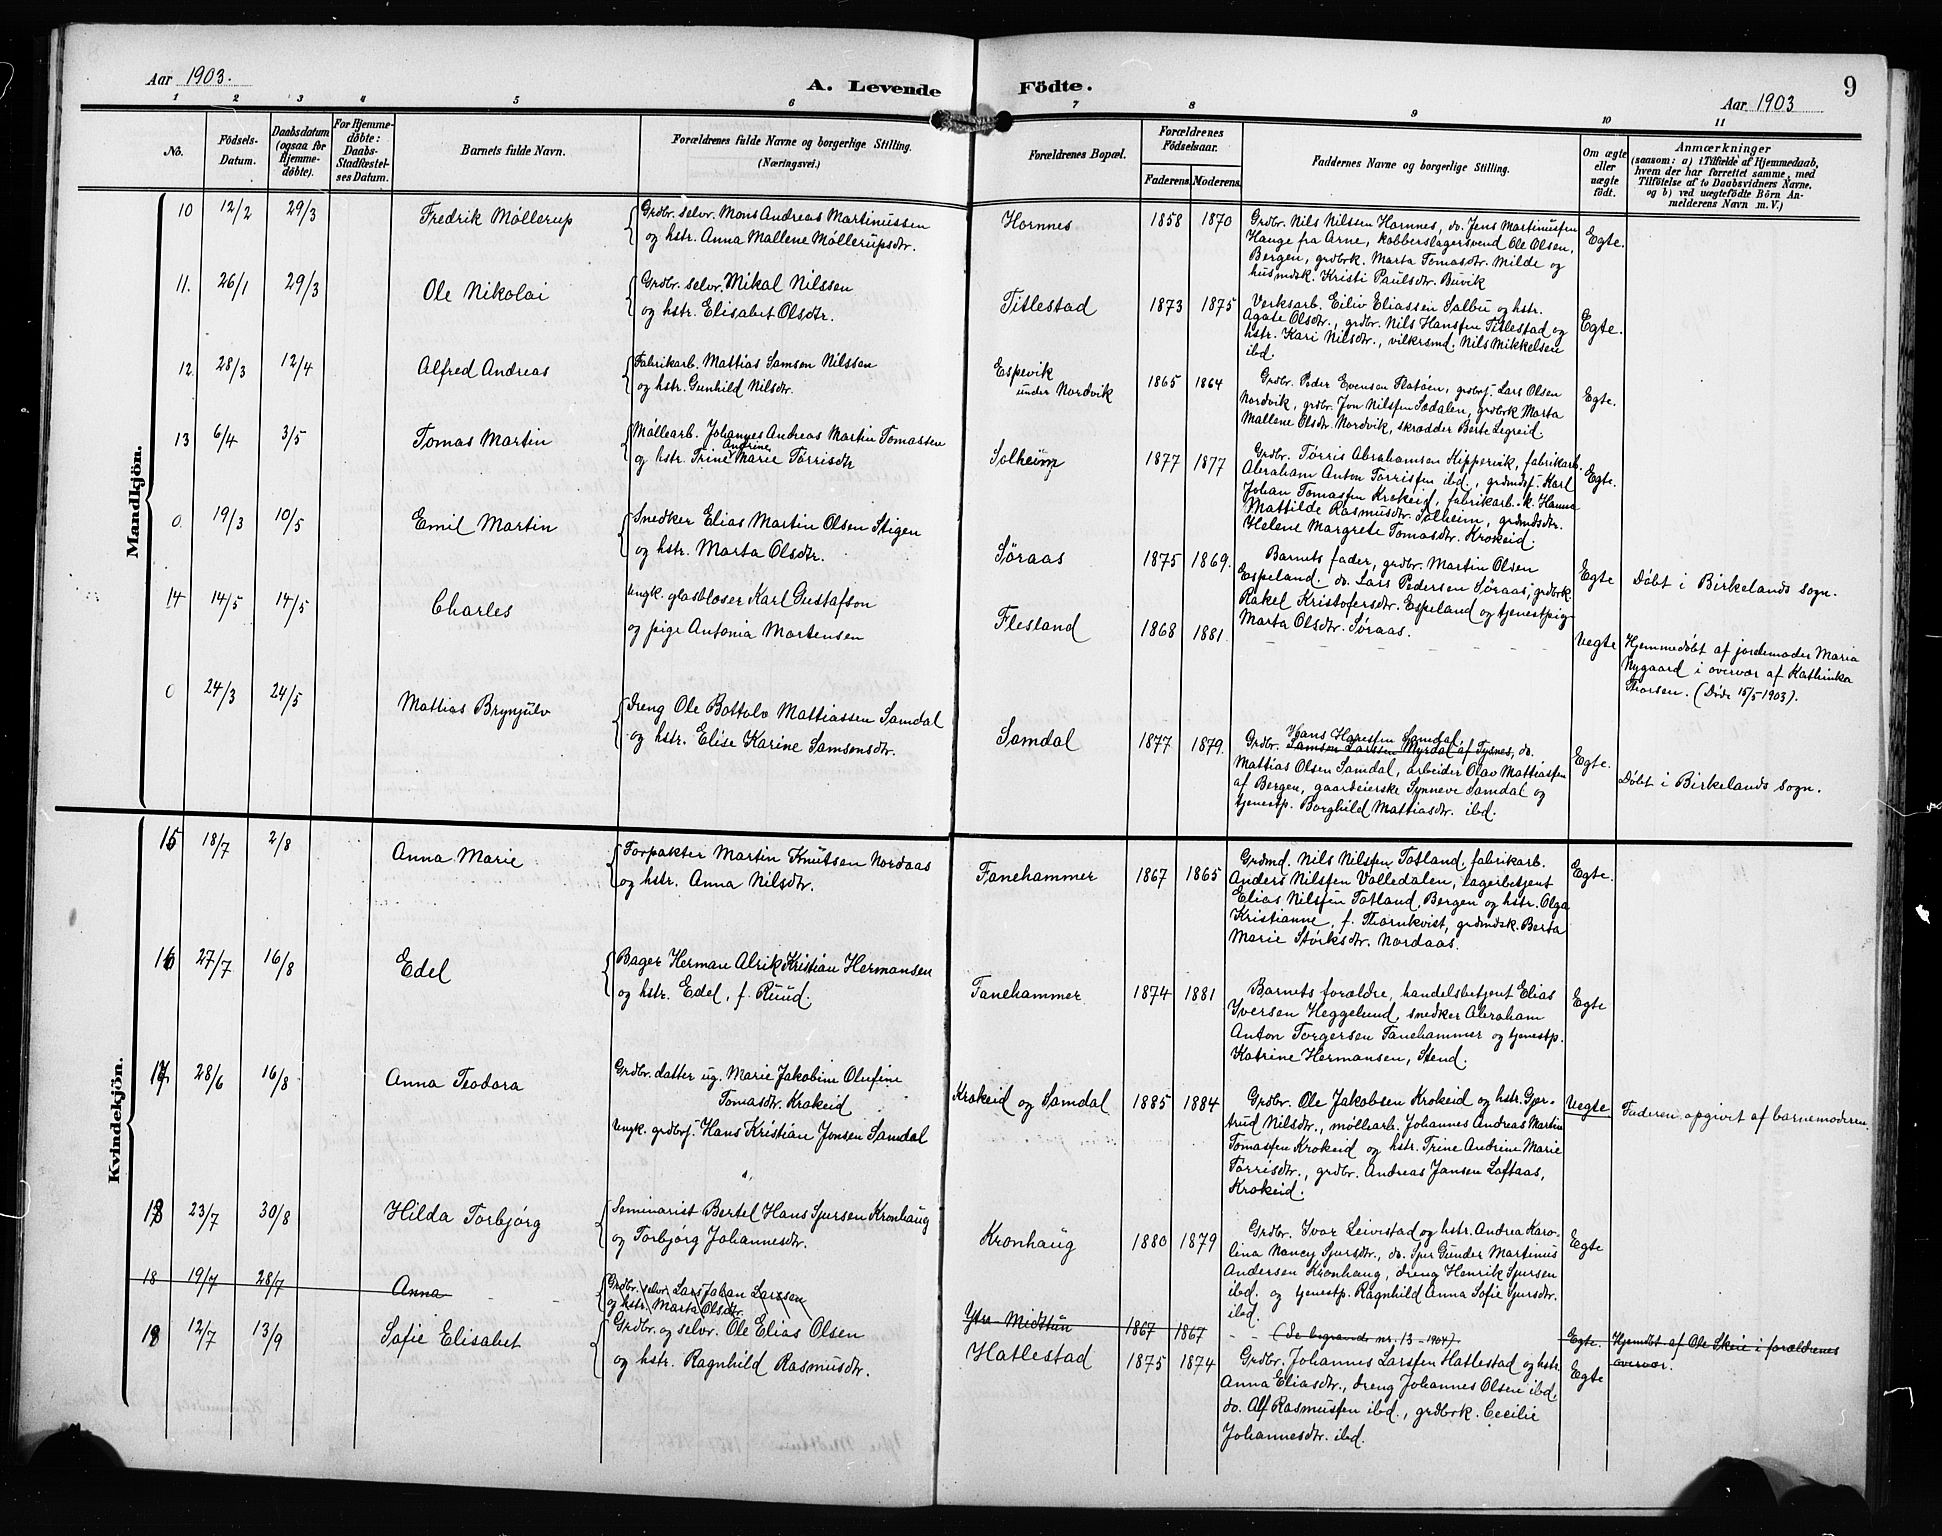 Aar 1903.
A. Levende Födte.
9
Aar 1903
1 2 3 4 5 6 7 8 9 10 11
No.
Födsels-
Datum.
Daabsdatum
(ogsaa for
Hjemme-
döbte).
For Hjemme-
döbte:
Daabs-
Stadfæstel-
ses Datum.
Barnets fulde Navn.
Forældrenes fulde Navne og borgerlige Stilling.
(Næringsvei.)
Forældrenes Bopæl.
Forældrenes
Födselsaar.
Faderens. Moderens.
Faddernes Navne og borgerlige Stilling.
Om ægte
eller
uægte
födt.
Anmærkninger
(saasom: a) i Tilfælde af Hjemmedaab,
hvem der har forrettet samme, med
Tilföielse af to Daabsvidners Navne,
og b) ved uægtefödte Börn An-
melderens Navn m. V.)
Mandkjön.
10 12/2 29/3 Fredrik Møllerup
Grdbr. selv. Mons Andreas Martinussen
og hstr. Anna Mallene Møllerupsdtr.
Hornnes 1858 1870
Grdbr. Nils Nilssen Hornnes, do. Jens Martinussen
Hauge fra Arne, kobberslagersvend Ole Olsen,
Bergen, grdbrk. Marta Tomasdtr. Milde og
husmdsk. Kristi Paulsdtr. Buvik
Egte.
11. 26/1 29/3 Ole Nikolai
Grdbr. selv. Mikal Nilssen
og hstr. Elisabet Olsdtr.
Titlestad 1873 1875
Verksarb. Eiliv Eliassen Salbu og hstr.
Agate Olsdtr., grdbr. Nils Hanssen Titlestad og
hstr. Kari Nilsdtr., vilkrsmd. Nils Mikkelsen
ibd.
Egte.
12. 28/3 12/4 Alfred Andreas
Fabrikarb. Mattias Samson Nilssen
og hstr. Gunhild Nilsdtr.
Espevik
under Nordvik
1865 1864
Grdbr. Peder Evensen Flatøen, grdbrs. Lars Olsen
Nordvik, grdbr. Jon Nilssen Sædalen, grdbrk Marta
Mallene Olsdtr. Nordvik, skrædder Berte Legreid
Egte.
13 6/4 3/5 Tomas Martin
Møllearb. Johannes Andreas Martin Tomassen
Andrine
og hstr. Trine Marie Tørrisdtr
Solheim 1877 1877
Grdbr. Tørris Abrahamsen Kippervik, fabrikarb.
Abraham Anton Tørrissen ibd., grdmds. Karl
Johan Tomassen Krokeid, fabrikarb. k. Hanna
Mattilde Rasmusdtr. Solheim, grdmdsdtr.
Helene Margrete Tomasdtr. Krokeid.
Egte.
0. 19/3 10/5 Emil Martin
Snedker Elias Martin Olsen Stigen
og hstr. Marta Olsdtr.
Søraas 1875 1869.
Barnets fader, grdbr. Martin Olsen
Espeland, do. Lars Pedersen Søraas, grdbrk.
Rakel Kristofersdtr. Espeland og tjenestpig
Marta Olsdtr. Søraas.
Egte
Døbt i Birkelands sogn.
14 14/5 14/5 Charles
Ungk. glasblæser Karl Gustafson
og pige Antonia Mortensen
Flesland 1868 1881
- - - - - - -
Uegte
Hjemmedøbt af jordemoder Maria
Nygaard i overvær af Kathinka
Thorsen. (Døde 15/5-1903).
0 24/3 24/5 Mattias Brynjulv
Dreng Ole Bottolv Mattiassen Samdal
og hstr. Elise Karine Samsonsdtr.
Samdal 1877 1879.
Hans Hanssen Samdal,
Grdbr. Samson Larssen Myrdal af Tysnes, do.
Mattias Olsen Samdal, arbeider Olav Mattiassen
af Bergen, gaardeierske Synneve Samdal og
tjenestp. Borghild Mattiasdtr. ibd.
Egte.
Døbt i Birkelands sogn.
Kvindekjön.
15 18/7 2/8 Anna Marie
Forpakter Martin Knutsen Nordaas
og hstr. Anna Nilsdtr.
Fanehammer 1867 1865
Grdmd. Nils Nilssen Totland, fabrikarb.
Anders Nilssen Valledalen, lagerbetjent
Elias Nilssen Totland, Bergen og hstr. Olga
Kristianne, f. Thornkvist, grdmdsk. Berta
Marie Størksdtr. Nordaas.
Egte.
16 27/7 16/8 Edel
Bager Herman Alrik Kristian Hermansen
og hstr. Edel, f. Ruud.
Fanehammer 1874 1881
Barnets forældre, handelsbetjent Elias
Iversen Heggelund, snedker Abraham
Anton Torgersen Fanehammer og tjenestp.
Katrine Hermansen, Stend.
Egte
17 28/6 16/8 Anna Teodora
Grdbr. datter ug. Marie Jakobine Olufine
Tomasdtr. Krokeid
Ungk. grdbrs. Hans Kristian Jonsen Samdal
Krokeid og Samdal 1885 1884
Grdbr. Ole Jakobsen Krokeid og hstr. Gjer-
trud Nilsdtr., møllearb. Johannes Andreas Martin
Tomassen Krokeid og hstr. Trine Andrine Marie
Tørrisdtr., grdbr. Andreas Jansen Loftaas,
Krokeid.
Uegte
Faderen opgivet af barnemoderen.
18 23/7 30/8 Hilda Torbjørg
Seminarist Bertel Hans Sjursen Kronhaug
og Torbjørg Johannesdtr.
Kronhaug 1880 1879
Grdbr. Ivar Leivestad og hstr. Andrea Karo-
lina Nancy Sjursdtr., do. Sjur Gunder Martinus
Andersen Kronhaug, dreng Henrik Sjursen
ibd. og tjenestp. Ragnhild Anna Sofie Sjursdtr.
ibd.
Egte
18 19/7 28/7 Anna - -
Grdbr. selv. Lars Johan Larssen
og hstr. Marta Olsdtr.
Ytre Midttun 1867 1867
- - (Se begravede nr. 13 - 1904)
Egte.
Hjemdøbt af Ole Skeie i forældrenes
overvær.
19 12/7 13/9 Sofie Elisabet
Grdbr. og selv. Ole Elias Olsen
og hstr. Ragnhild Rasmusdtr.
Hatlestad 1875 1874
Grdbr. Johannes Larssen Hatlestad og hstr.
Anna Eliasdtr., dreng Johannes Olsen ibd,
do. Alf Rasmussen ibd., grdbrk. Cecilie
Johannesdtr. ibd.
Egte